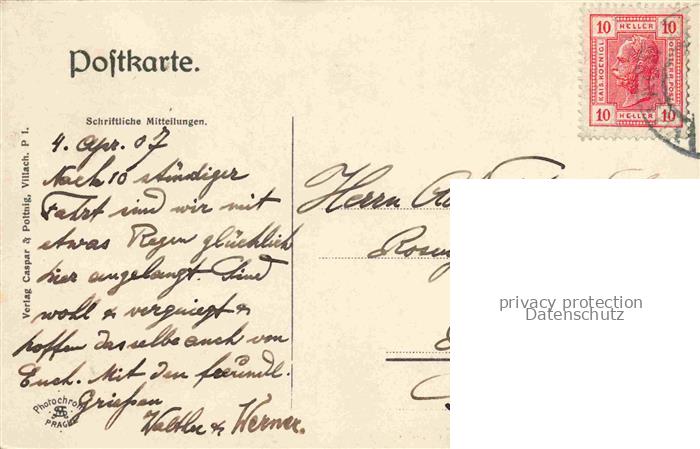 Postkarte.
10 HELLER 10
KAIS. KOENIGL.
OESTERR. POST
10 HELLER 10
Schriftliche Mitteilungen.
4. Apr. 07
Nach 10 stündiger
Fahrt sind wir mit
etwas Regen glücklich
hier angelangt. Sind
wohl & vergnügt &
hoffen dasselbe auch von
Euch. Mit den freundl.
Grüßen
Walther & Werner.
Herrn
Verlag Caspar & Pottnig, Villach. P 1.
Photochrom
PRAG
privacy protection
Datenschutz